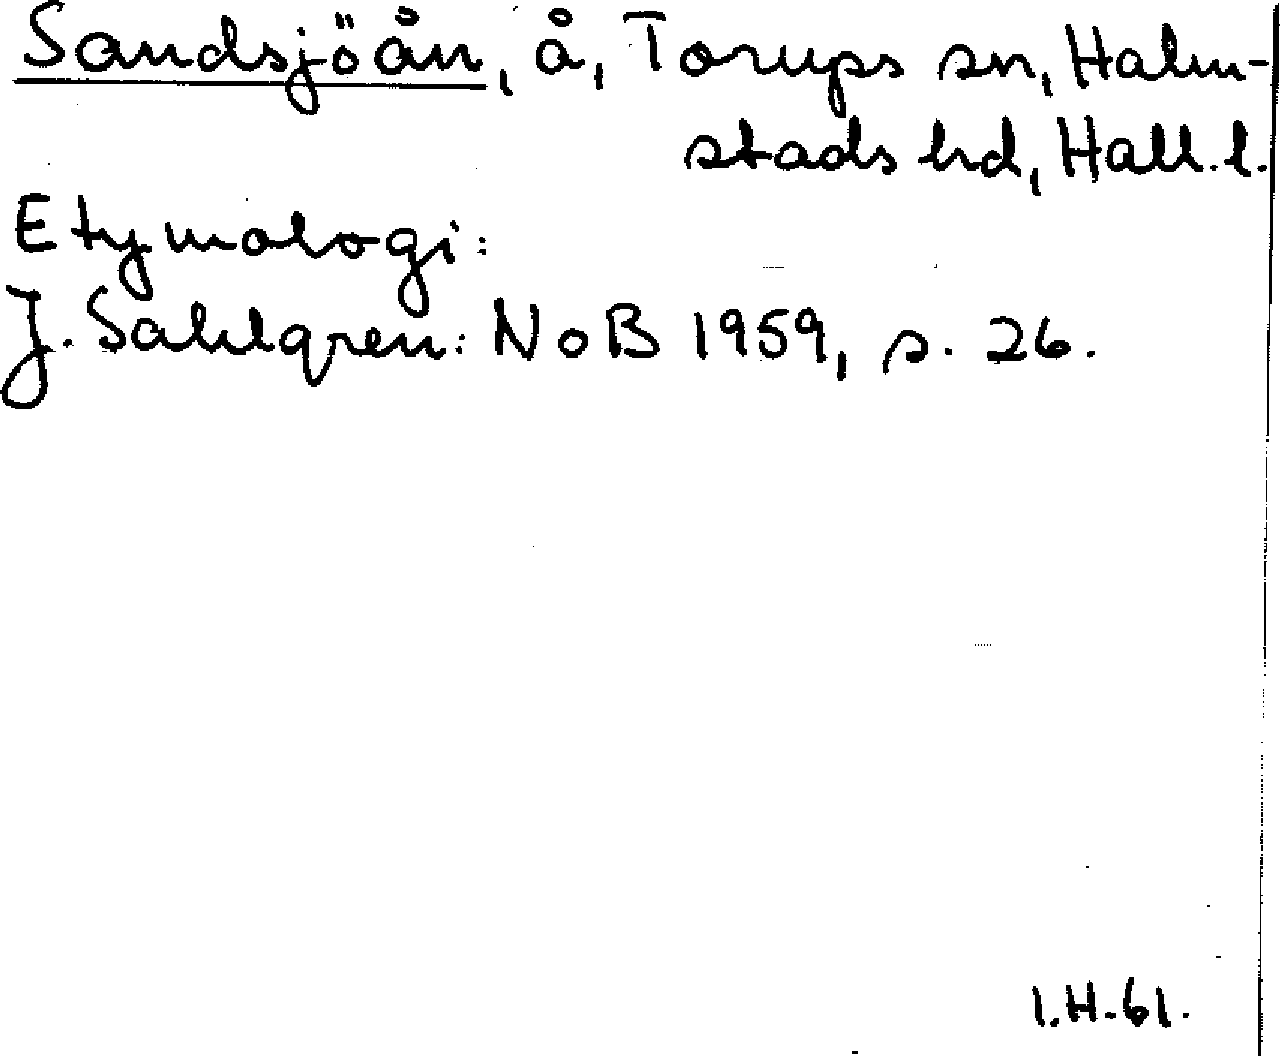 Sandsjöån, å, Torups sn, Halm-
stads hd, Hall. l.
Etymologi:
J. Sahlgren: NoB 1959, s. 26.
I.H.61.